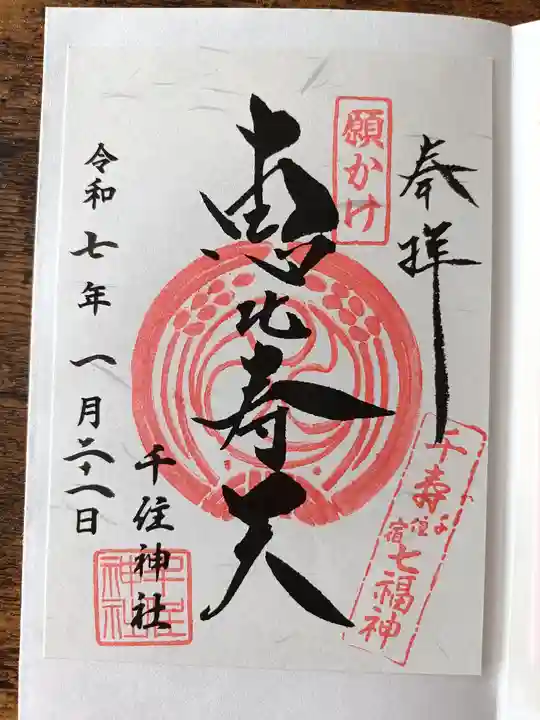 奉拝
願かけ
千壽
住宿
よ
七福神
恵比寿天
千住神社
令和七年一月二十一日
千住神社